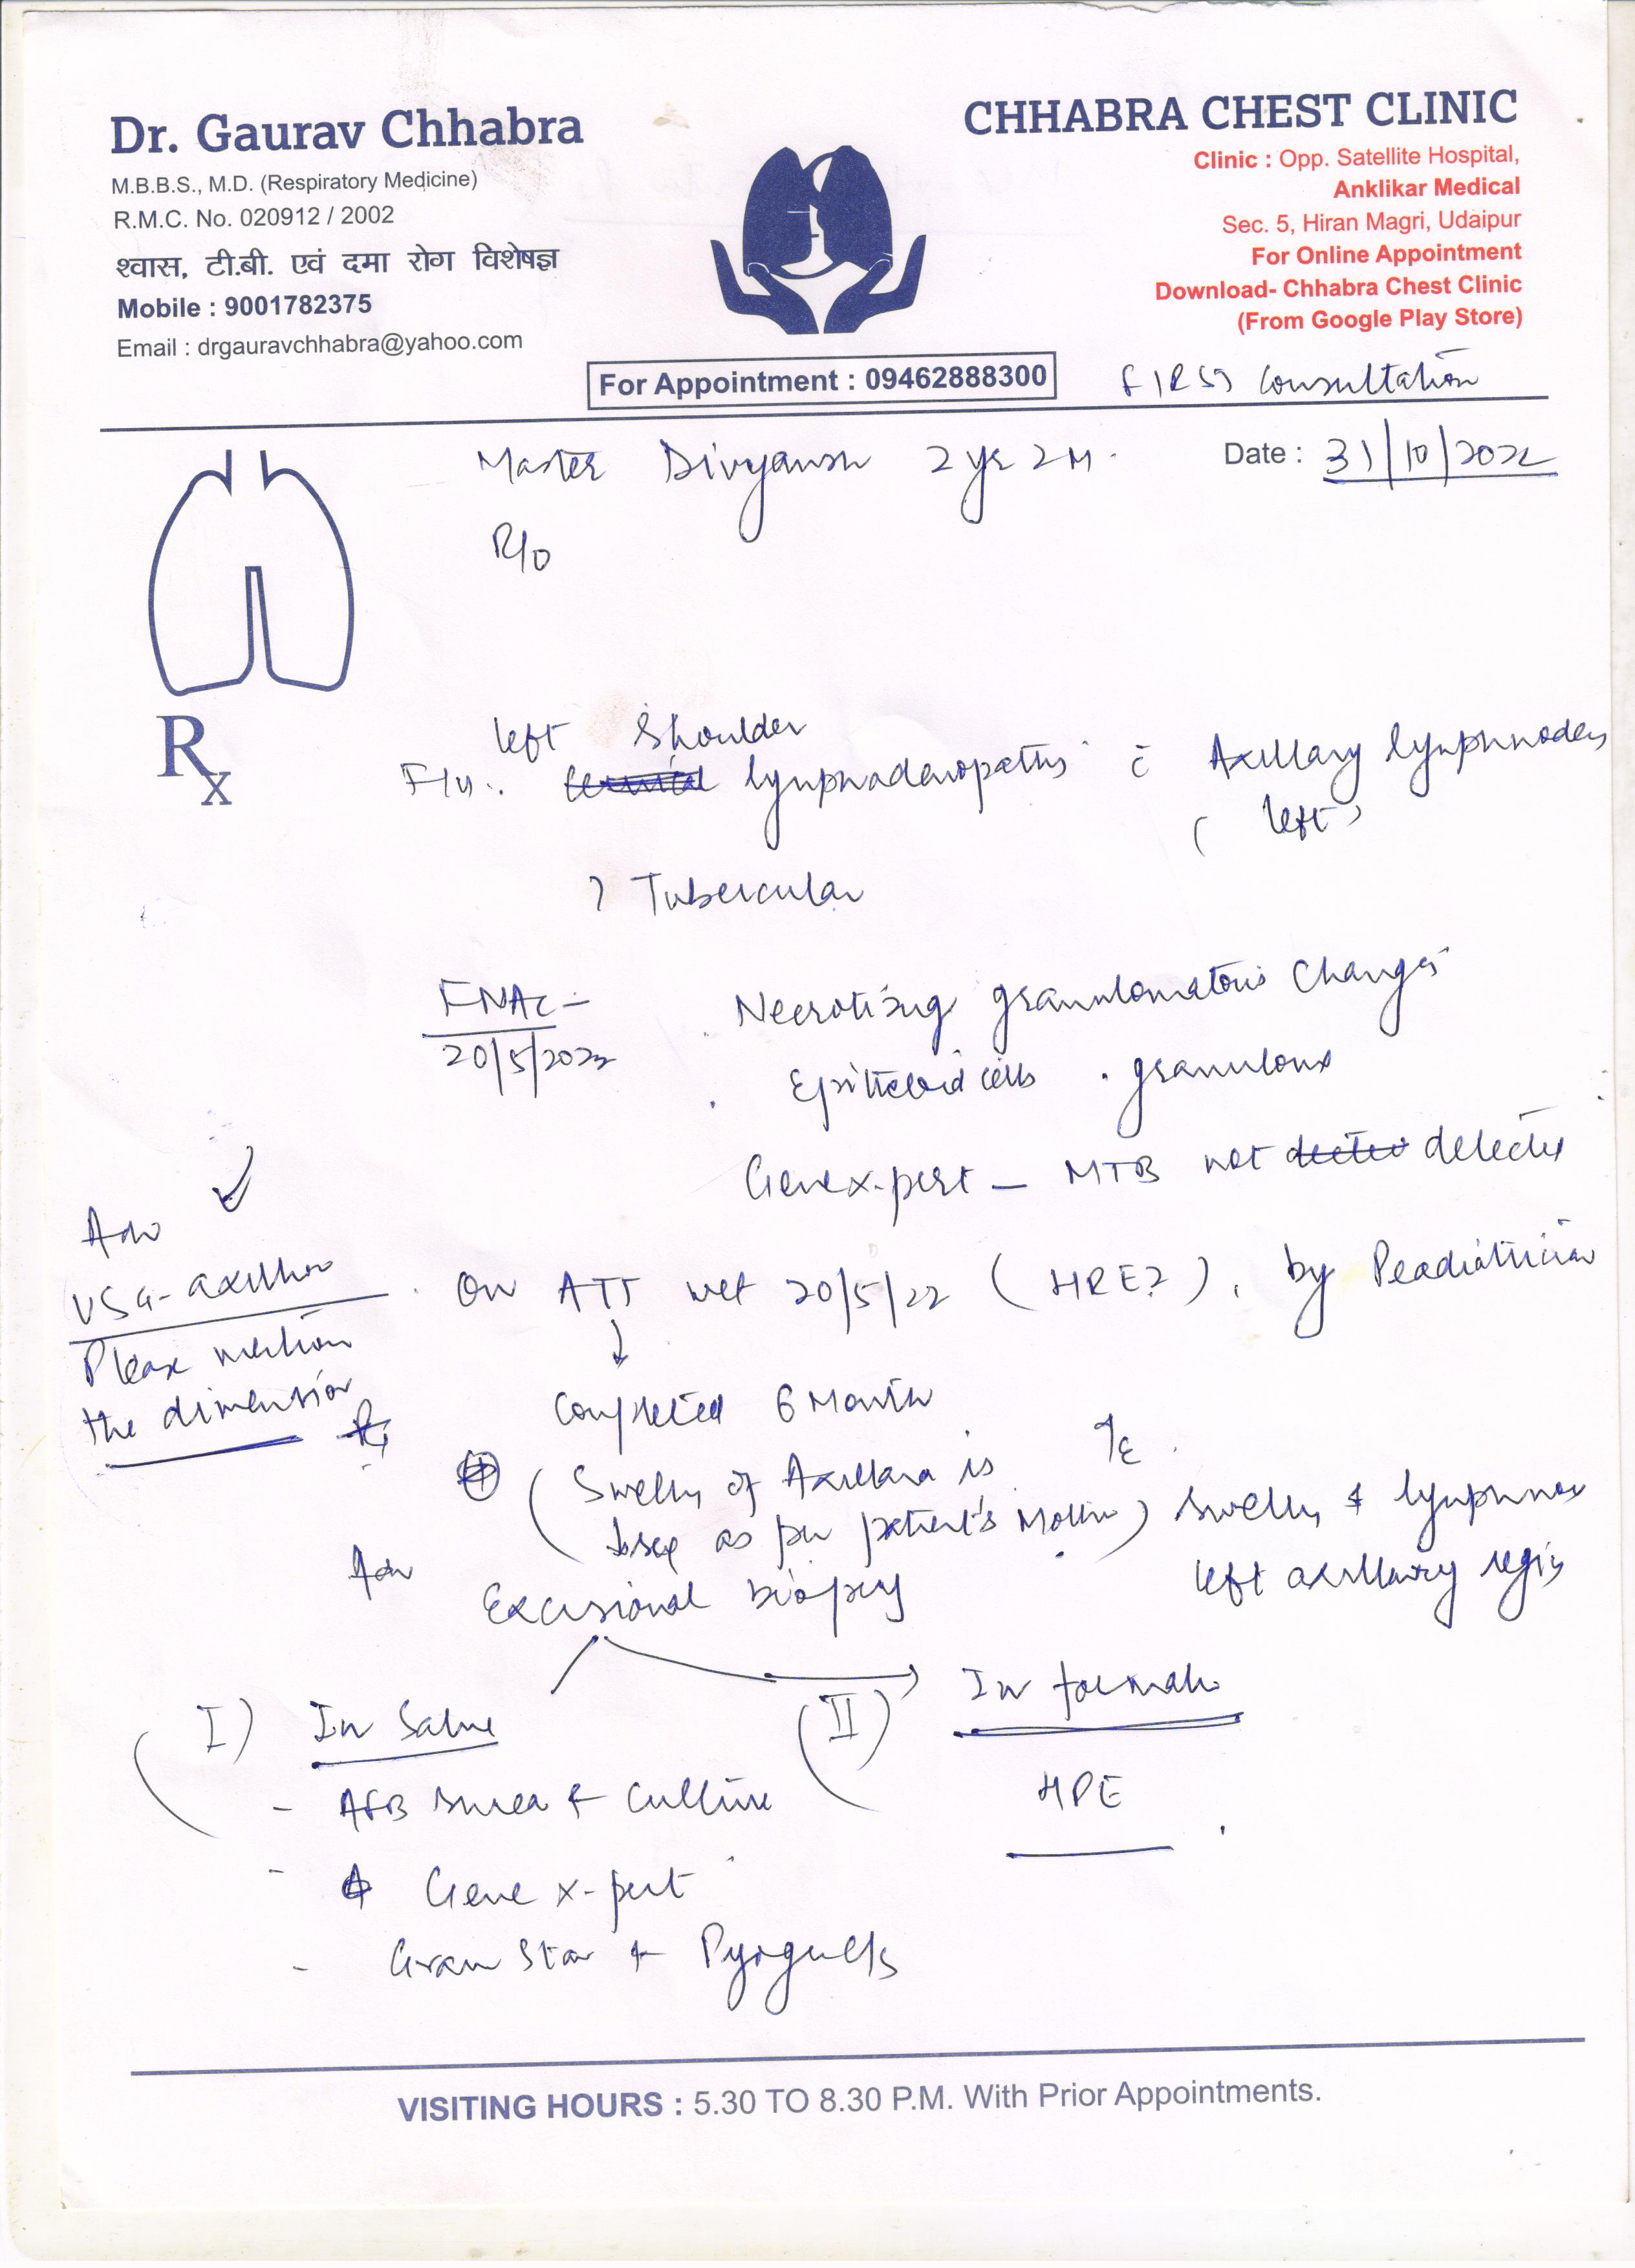 Dr. Gaurav Chhabra
M.B.B.S., M.D. (Respiratory Medicine)
R.M.C. No. 020912 / 2002
श्वास, टी.बी. एवं दमा रोग विशेषज्ञ
Mobile : 9001782375
Email : drgauravchhabra@yahoo.com
CHHABRA CHEST CLINIC
Clinic : Opp. Satellite Hospital,
Anklikar Medical
Sec. 5, Hiran Magri, Udaipur
For Online Appointment
Download- Chhabra Chest Clinic
(From Google Play Store)
For Appointment : 09462888300
FIRST Consultation
Master Divyansh 2 yr 2 M.
Date : 31/10/2022
R/o
Rx
left Shoulder
F/u. lymphadenopathy c̄ Axillary lymphnodes
( left )
? Tubercular
FNAC - Necrotizing granulomatous changes
20/5/2022
Epitheloid cells . granuloma
Genex-pert - MTB not detected
Adv
USG - axilla
Please mention
the dimension
On ATT wef 20/5/22 ( HRE? ), by Peadiatrician
↓
Completed 6 Month
(Swelling of Axillara is
as per patient's Mother)
Swelling lymphnode
left axillary region
Adv
Excisional biopsy
I) In Saline
- AFB smear & Culture
- Gene x-pert
- Gram Stain & Pyogenic c/s
II) In formalin
HPE
VISITING HOURS : 5.30 TO 8.30 P.M. With Prior Appointments.